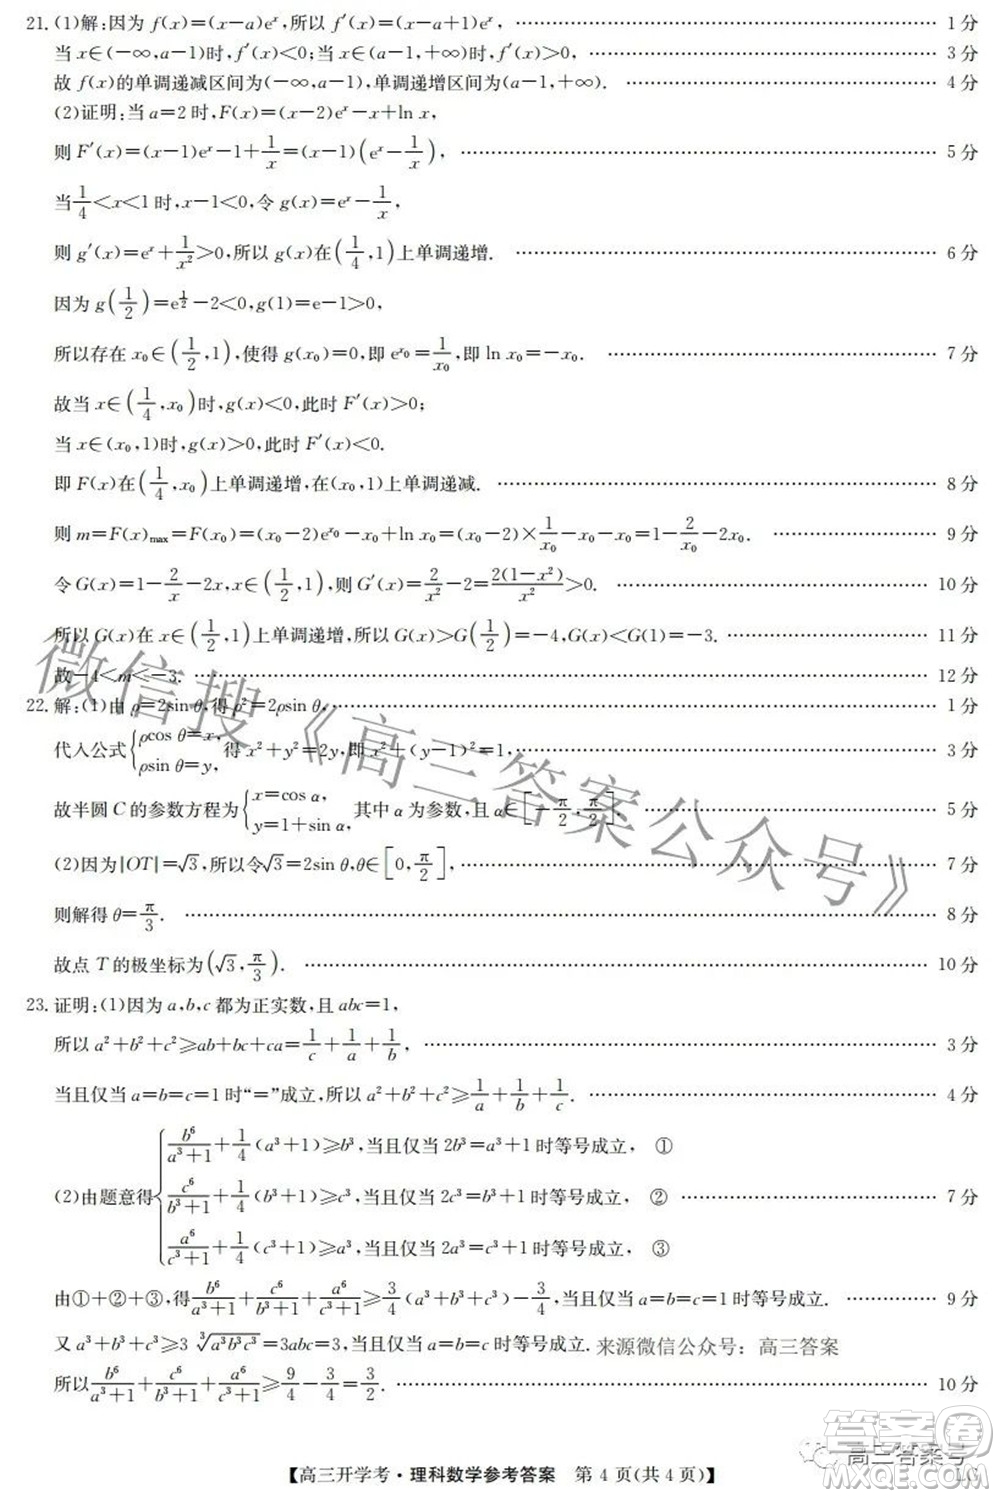 21. (1)解:因为 f(x)=(x-a)eˣ,所以 f′(x)=(x-a+1)eˣ, …… 1分
当 x∈(-∞,a-1)时,f′(x)<0;当 x∈(a-1,+∞)时,f′(x)>0, …… 3分
故 f(x)的单调递减区间为(-∞,a-1),单调递增区间为(a-1,+∞). …… 4分
(2)证明:当 a=2 时,F(x)=(x-2)eˣ-x+ln x,
则 F′(x)=(x-1)eˣ-1+1/x=(x-1)(eˣ-1/x), …… 5分
当1/4<x<1 时,x-1<0,令 g(x)=eˣ-1/x,
则 g′(x)=eˣ+1/x²>0,所以 g(x)在(1/4,1)上单调递增. …… 6分
因为 g(1/2)=e^(1/2)-2<0,g(1)=e-1>0,
所以存在 x₀∈(1/2,1),使得 g(x₀)=0,即 e^(x₀)=1/x₀,即 ln x₀=-x₀. …… 7分
故当 x∈(1/4,x₀)时,g(x)<0,此时 F′(x)>0;
当 x∈(x₀,1)时,g(x)>0,此时 F′(x)<0.
即 F(x)在(1/4,x₀)上单调递增,在(x₀,1)上单调递减. …… 8分
则 m=F(x)max=F(x₀)=(x₀-2)e^(x₀)-x₀+ln x₀=(x₀-2)×1/x₀-x₀-x₀=1-2/x₀-2x₀. …… 9分
令 G(x)=1-2/x-2x,x∈(1/2,1),则 G′(x)=2/x²-2=2(1-x²)/x²>0. …… 10分
所以 G(x)在 x∈(1/2,1)上单调递增,所以 G(x)>G(1/2)=-4,G(x)<G(1)=-3. …… 11分
故-4<m<-3. …… 12分
22. 解:(1)由 ρ=2sin θ,得 ρ²=2ρsin θ, …… 1分
代入公式{ρcos θ=x, ρsin θ=y, 得 x²+y²=2y,即 x²+(y-1)²=1, …… 3分
故半圆 C 的参数方程为{x=cos α, y=1+sin α, 其中 α 为参数,且 α∈[-π/2,π/2]. …… 5分
(2)因为|OT|=√3,所以令√3=2sin θ,θ∈[0,π/2], …… 7分
则解得 θ=π/3. …… 8分
故点 T 的极坐标为(√3,π/3). …… 10分
23. 证明:(1)因为 a,b,c 都为正实数,且 abc=1,
所以 a²+b²+c²≥ab+bc+ca=1/c+1/a+1/b, …… 3分
当且仅当 a=b=c=1 时“=”成立,所以 a²+b²+c²≥1/a+1/b+1/c. …… 4分
b⁶/(a³+1)+1/4(a³+1)≥b³,当且仅当 2b³=a³+1 时等号成立, ①
(2)由题意得{c⁶/(b³+1)+1/4(b³+1)≥c³,当且仅当 2c³=b³+1 时等号成立, ② …… 7分
a⁶/(c³+1)+1/4(c³+1)≥a³,当且仅当 2a³=c³+1 时等号成立, ③
由①+②+③,得b⁶/(a³+1)+c⁶/(b³+1)+a⁶/(c³+1)≥3/4(a³+b³+c³)-3/4,当且仅当 a=b=c=1 时等号成立. …… 9分
又 a³+b³+c³≥3∛(a³b³c³)=3abc=3,当且仅当 a=b=c 时等号成立. 来源微信公众号:高三答案
所以b⁶/(a³+1)+c⁶/(b³+1)+a⁶/(c³+1)≥9/4-3/4=3/2. …… 10分
微信搜《高三答案公众号》
【高三开学考·理科数学参考答案 第 4 页(共 4 页)】
LG
高三答案号
答案圈
MXQE.COM